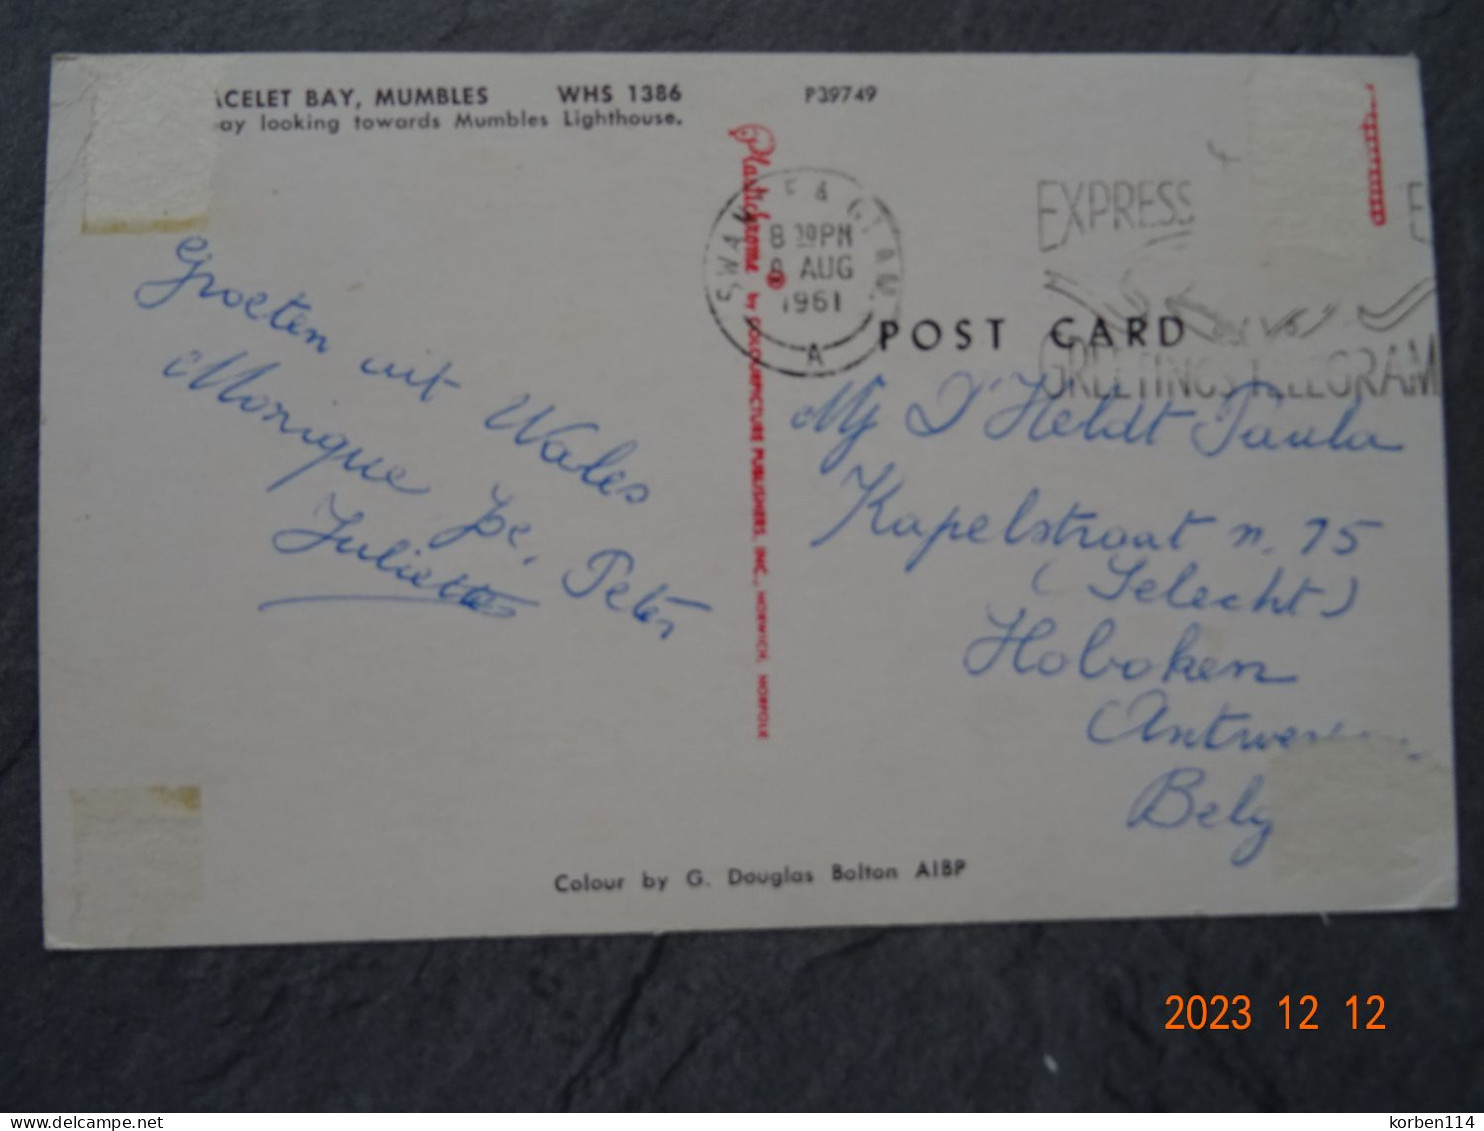 ACELET BAY, MUMBLES WHS 1386
ay looking towards Mumbles Lighthouse.
P39749
Groeten uit Wales
Monique Joe, Peter
Juliette
Plastichrome ® by COLOURPICTURE PUBLISHERS, INC., NORWICH, NORFOLK
SWAN & GLAM
8 AUG
1961
A
EXPRESS E
GREETINGS TELEGRAM
POST CARD
Mj D'Heldt Paula
Kapelstraat n. 75
(Selecht)
Hoboken
Antwer
Belg
Colour by G. Douglas Bolton AIBP
2023 12 12
delcampe.net
korben114